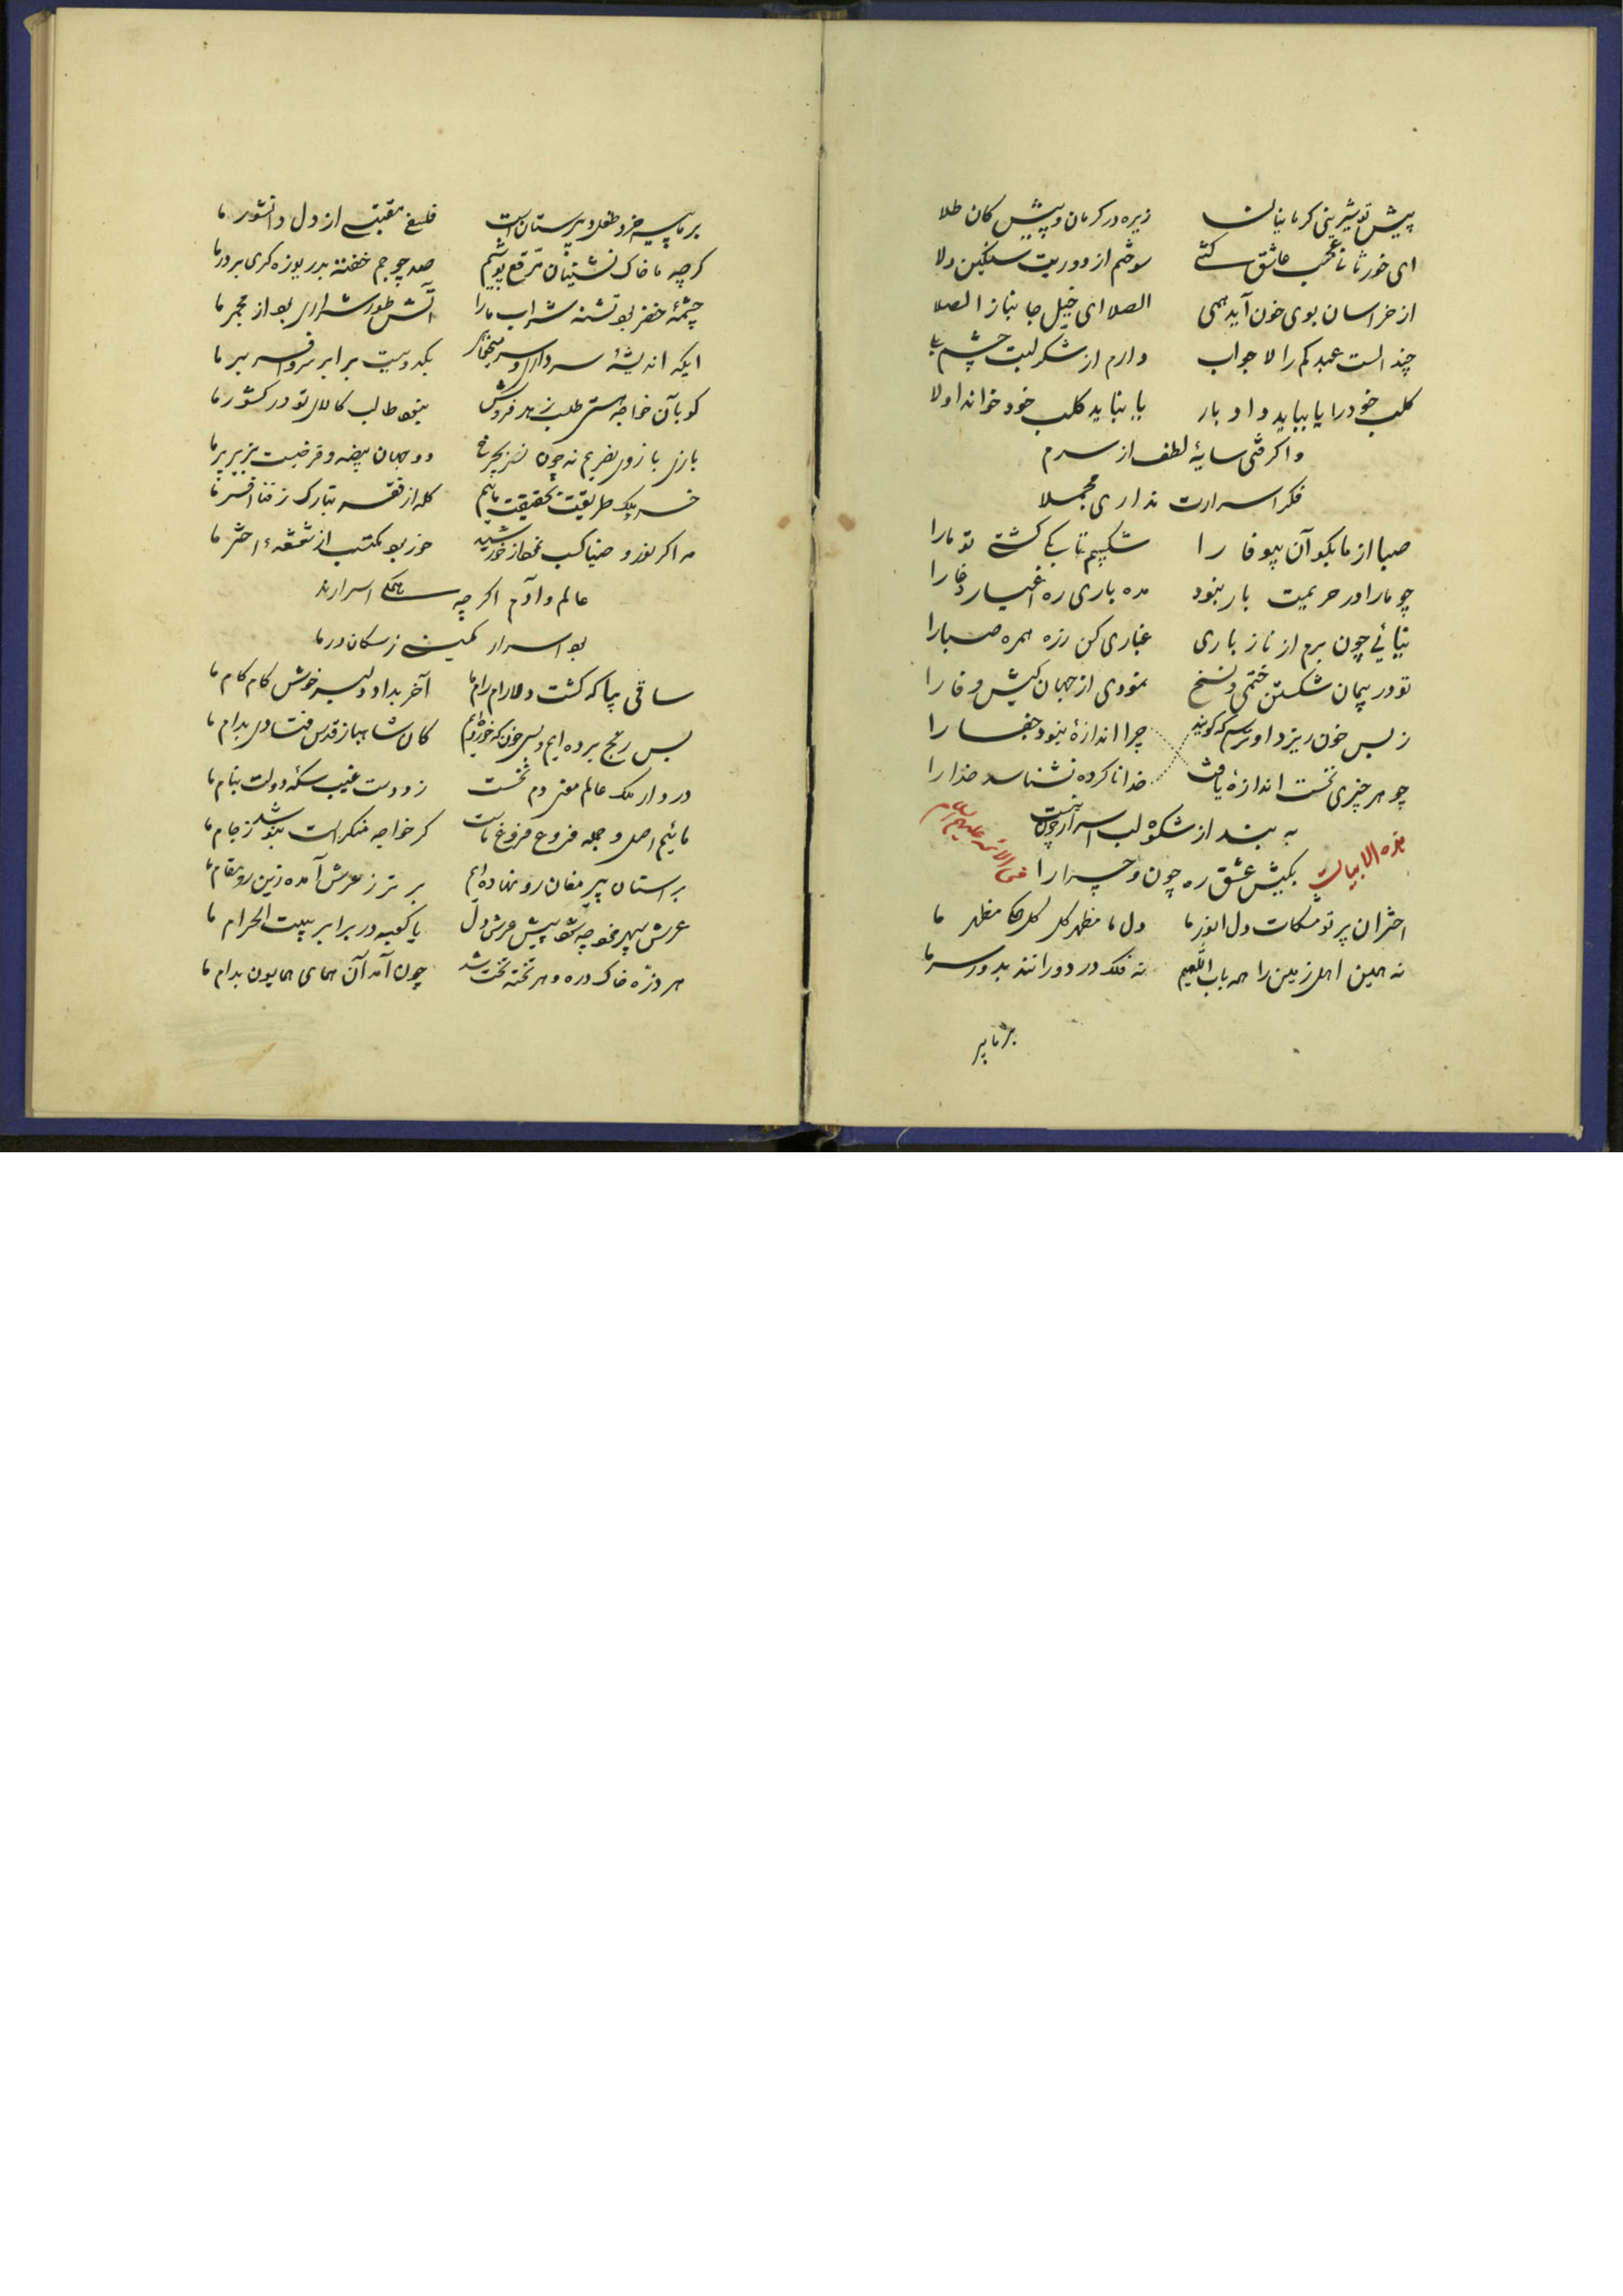 پیش تو شیرینی کرمانیان زیره در کرمان و پیش کان طلا
ای خور تا نا عجب عاشق کشی سوختم از دوریت سنگین دلا
از خراسان بوی خون آید همی الصلا ای خیل جانباز الصلا
چند الست عبدکم را لا جواب دارم از شکر لبت چشم بلی
کلب خود را یا بباید داد بار یا نباید کلب خود خواند اولا
واکرفتی سایهٔ لطف از سرم
فکر اسرارت نداری مجملا
صبا از ما بکو آن بیوفا را شکیبم تا بکی کشتی تو ما را
چو ما را در حریمت بار نبود مده باری ره اغیار دغا را
نیائی چون برم از ناز باری غباری کن زره همره صبا را
تو در پیمان شکستن ختمی و نسخ نمودی از جهان کیش وفا را
ز بس خون ریزد او ترسم که کویند چرا اندازهٔ نبود جفا را
چو هر چیزی نخست اندازهٔ یافت خدا ناکرده نشناسد خدا را
به بند از شکوه لب اسرار چون نیست
بکیش عشق ره چون و چرا را
هذه الابیات فی الائمه علیهم السلام
اختران پرتو مشکات دل انور ما دل ما مظهر کل کل همکی مظهر ما
نه همین اهل زمین را همه باب اللهیم نه فلک در دورانند بدور سر ما
بر ما پیر
بر ما پیر خرد طفل دبیرستان است فلسفی مقتبسی از دل دانشور ما
کرچه ما خاک نشینان مرقع پوشیم صد چو جم خفته بدریوزه کری بر در ما
چشمهٔ خضر بود تشنه شراب ما را آتش طور شراری بود از مجمر ما
ایکه اندیشهٔ سر داری و سر میخواهی بکدوئیست برابر سر و افسر بر ما
کو بآن خواجه هستی طلب زهد فروش نبود طالب کالای تو در کشور ما
بازی بازوی نصریم نه چون نسر بچرخ دو جهان بیضه و فرخیست بزیر پر ما
خسرو ملک طریقت بحقیقت مائیم کله از فقر بتارک ز فنا افسر ما
مه اکر نور و ضیا کسب نمود از خورشید خور بود مکتسب از شعشعهٔ اختر ما
عالم و آدم اکر چه همکی اسرارند
بود اسرار کمینی ز سکان در ما
ساقی بیا که کشت دلارام رام ما آخر بداد دلبر خوش کام کام ما
بس رنج برده ایم و بسی خون که خورده ایم کان شاهباز قدس فتاده بدام ما
در دار ملک عالم معنی دم نخست زد دست غیب سکهٔ دولت بنام ما
مائیم اصل و جمله فروغ فروغ ماست کر خواجه منکر است بنوشد ز جام ما
بر آستان پیر مغان رو نهاده ایم برتر ز عرش آمده زین رو مقام ما
عرش سپهر خود چه شود پیش عرش دل یا کعبه در برابر بیت الحرام ما
هر ذره خاک دره و هر تخته تخت شد چون آمد آن همای همایون بدام ما